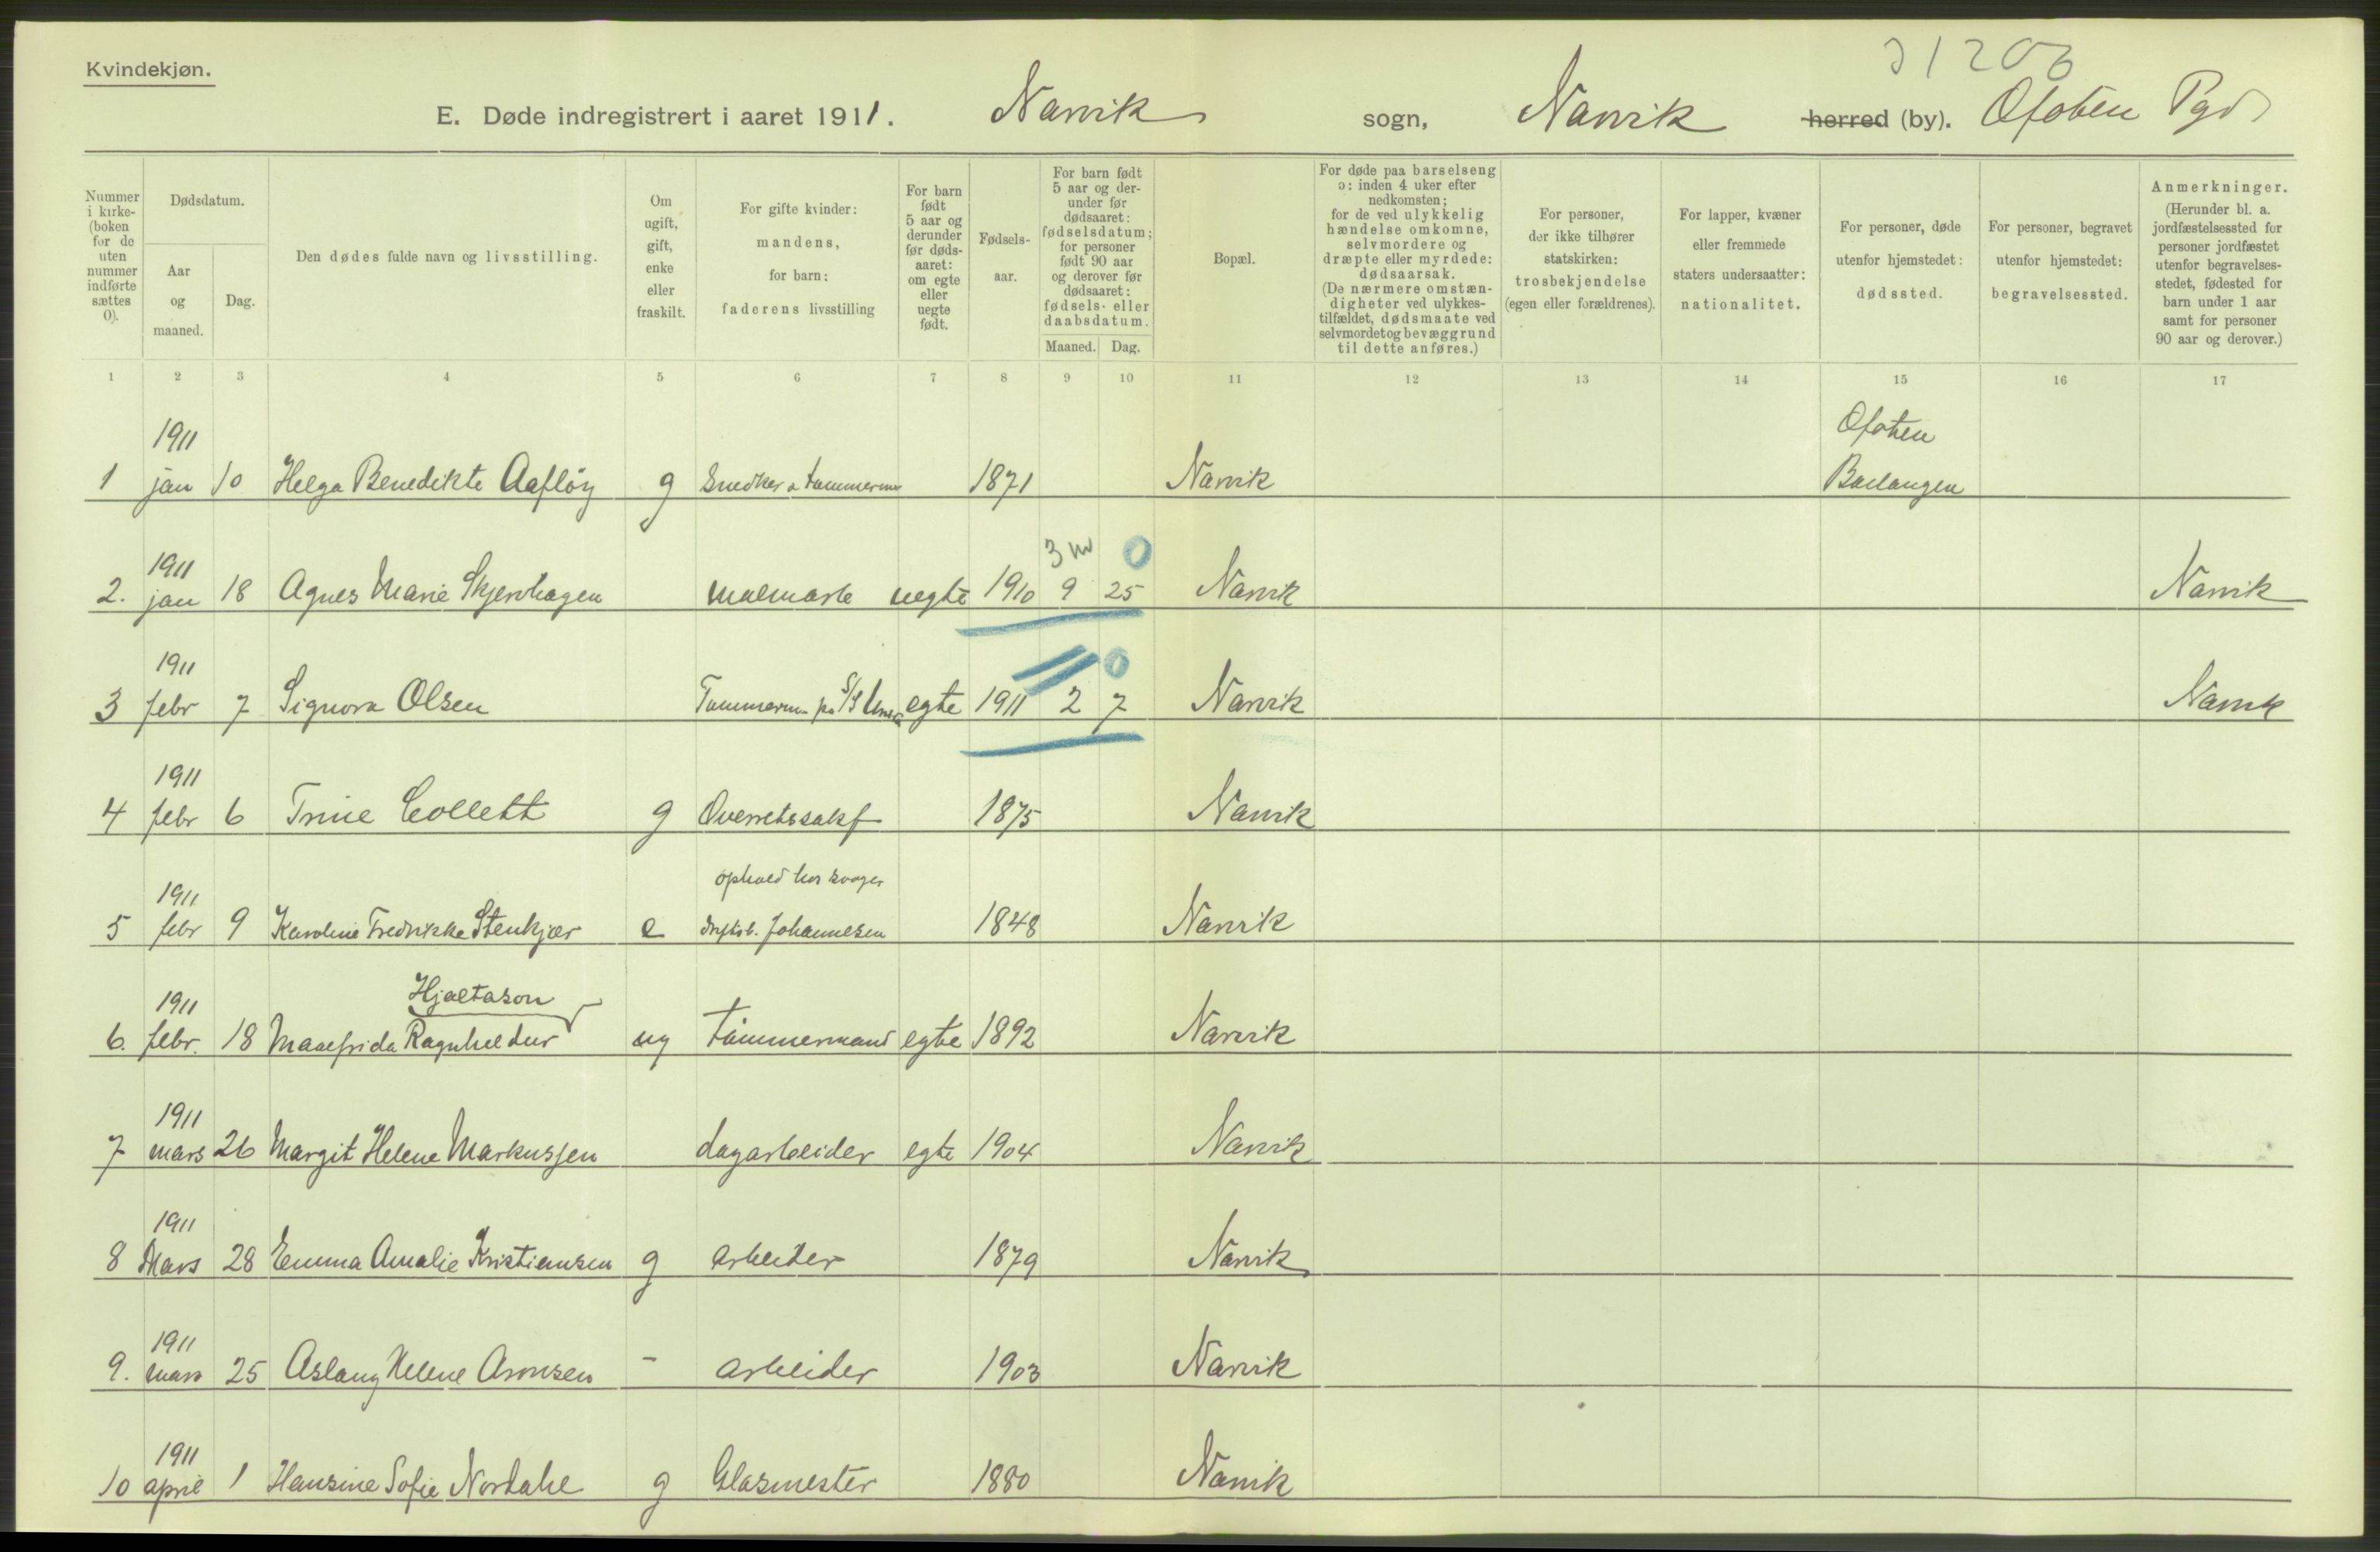 Kvindekjøn.
E. Døde indregistrert i aaret 1911. Narvik sogn, Narvik herred (by). Ofoten Pgd
Nummer i kirke-(boken for de uten nummer indførte sættes 0).
Dødsdatum.
Aar og maaned.
Dag.
Den dødes fulde navn og livsstilling.
Om ugift, gift, enke eller fraskilt.
For gifte kvinder: mandens, for barn: faderens livsstilling
For barn født 5 aar og derunder før døds-aaret: om egte eller uegte født.
Fødsels-aar.
For barn født 5 aar og der-under før dødsaaret: fødselsdatum; for personer født 90 aar og derover før dødsaaret: fødsels- eller daabsdatum.
Maaned. Dag.
Bopæl.
For døde paa barselseng ɔ: inden 4 uker efter nedkomsten; for de ved ulykkelig hændelse omkomne, selvmordere og dræpte eller myrdede: dødsaarsak. (De nærmere omstæn-digheter ved ulykkes-tilfældet, dødsmaate ved selvmordet og bevæggrund til dette anføres.)
For personer, der ikke tilhører statskirken: trosbekjendelse (egen eller forældrenes).
For lapper, kvæner eller fremmede staters undersaatter: nationalitet.
For personer, døde utenfor hjemstedet: dødssted.
For personer, begravet utenfor hjemstedet: begravelsessted.
Anmerkninger. (Herunder bl. a. jordfæstelsessted for personer jordfæstet utenfor begravelses-stedet, fødested for barn under 1 aar samt for personer 90 aar og derover.)
1 2 3 4 5 6 7 8 9 10 11 12 13 14 15 16 17
1911 Ofoten
1 jan 10 Helga Benedikte Aafløy g Snedker o tømmerm 1871 Narvik
1911 3 m 0
2. jan 18 Agnes Marie Skjervhagen uegte 1910 9 25 Narvik Narvik
1911 0
3 febr 7 Signora Olsen Tømmerm. på S/S egte 1911 2 7 Narvik Narvik
1911
4 febr 6 Trine Collett g Overretssakf 1875 Narvik
1911 ophold hos svoger
5 febr 9 Karoline Fredrikke Stenkjær e Johannesen 1848 Narvik
1911 Hjaltason
6. febr. 18 Ragnheidur ug tømmermand egte 1892 Narvik
1911
7 mars 26 Margit Helene Markussen dagarbeider egte 1904 Narvik
1911
8 Mars 28 Emma Amalie Kristiansen g arbeider 1879 Narvik
1911
9. mars 25 Aslaug Helene Aronsen - arbeider 1903 Narvik
1911
10 april 1 Hansine Sofie Nordahl g Glasmester 1880 Narvik